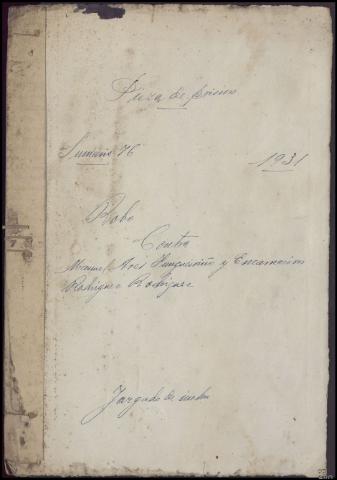 Pieza de prision
Sumario 76 - 1931
Robo
Contra
Manuel Ares y Encarnacion
Rodriguez Rodriguez
Juzgado de
7